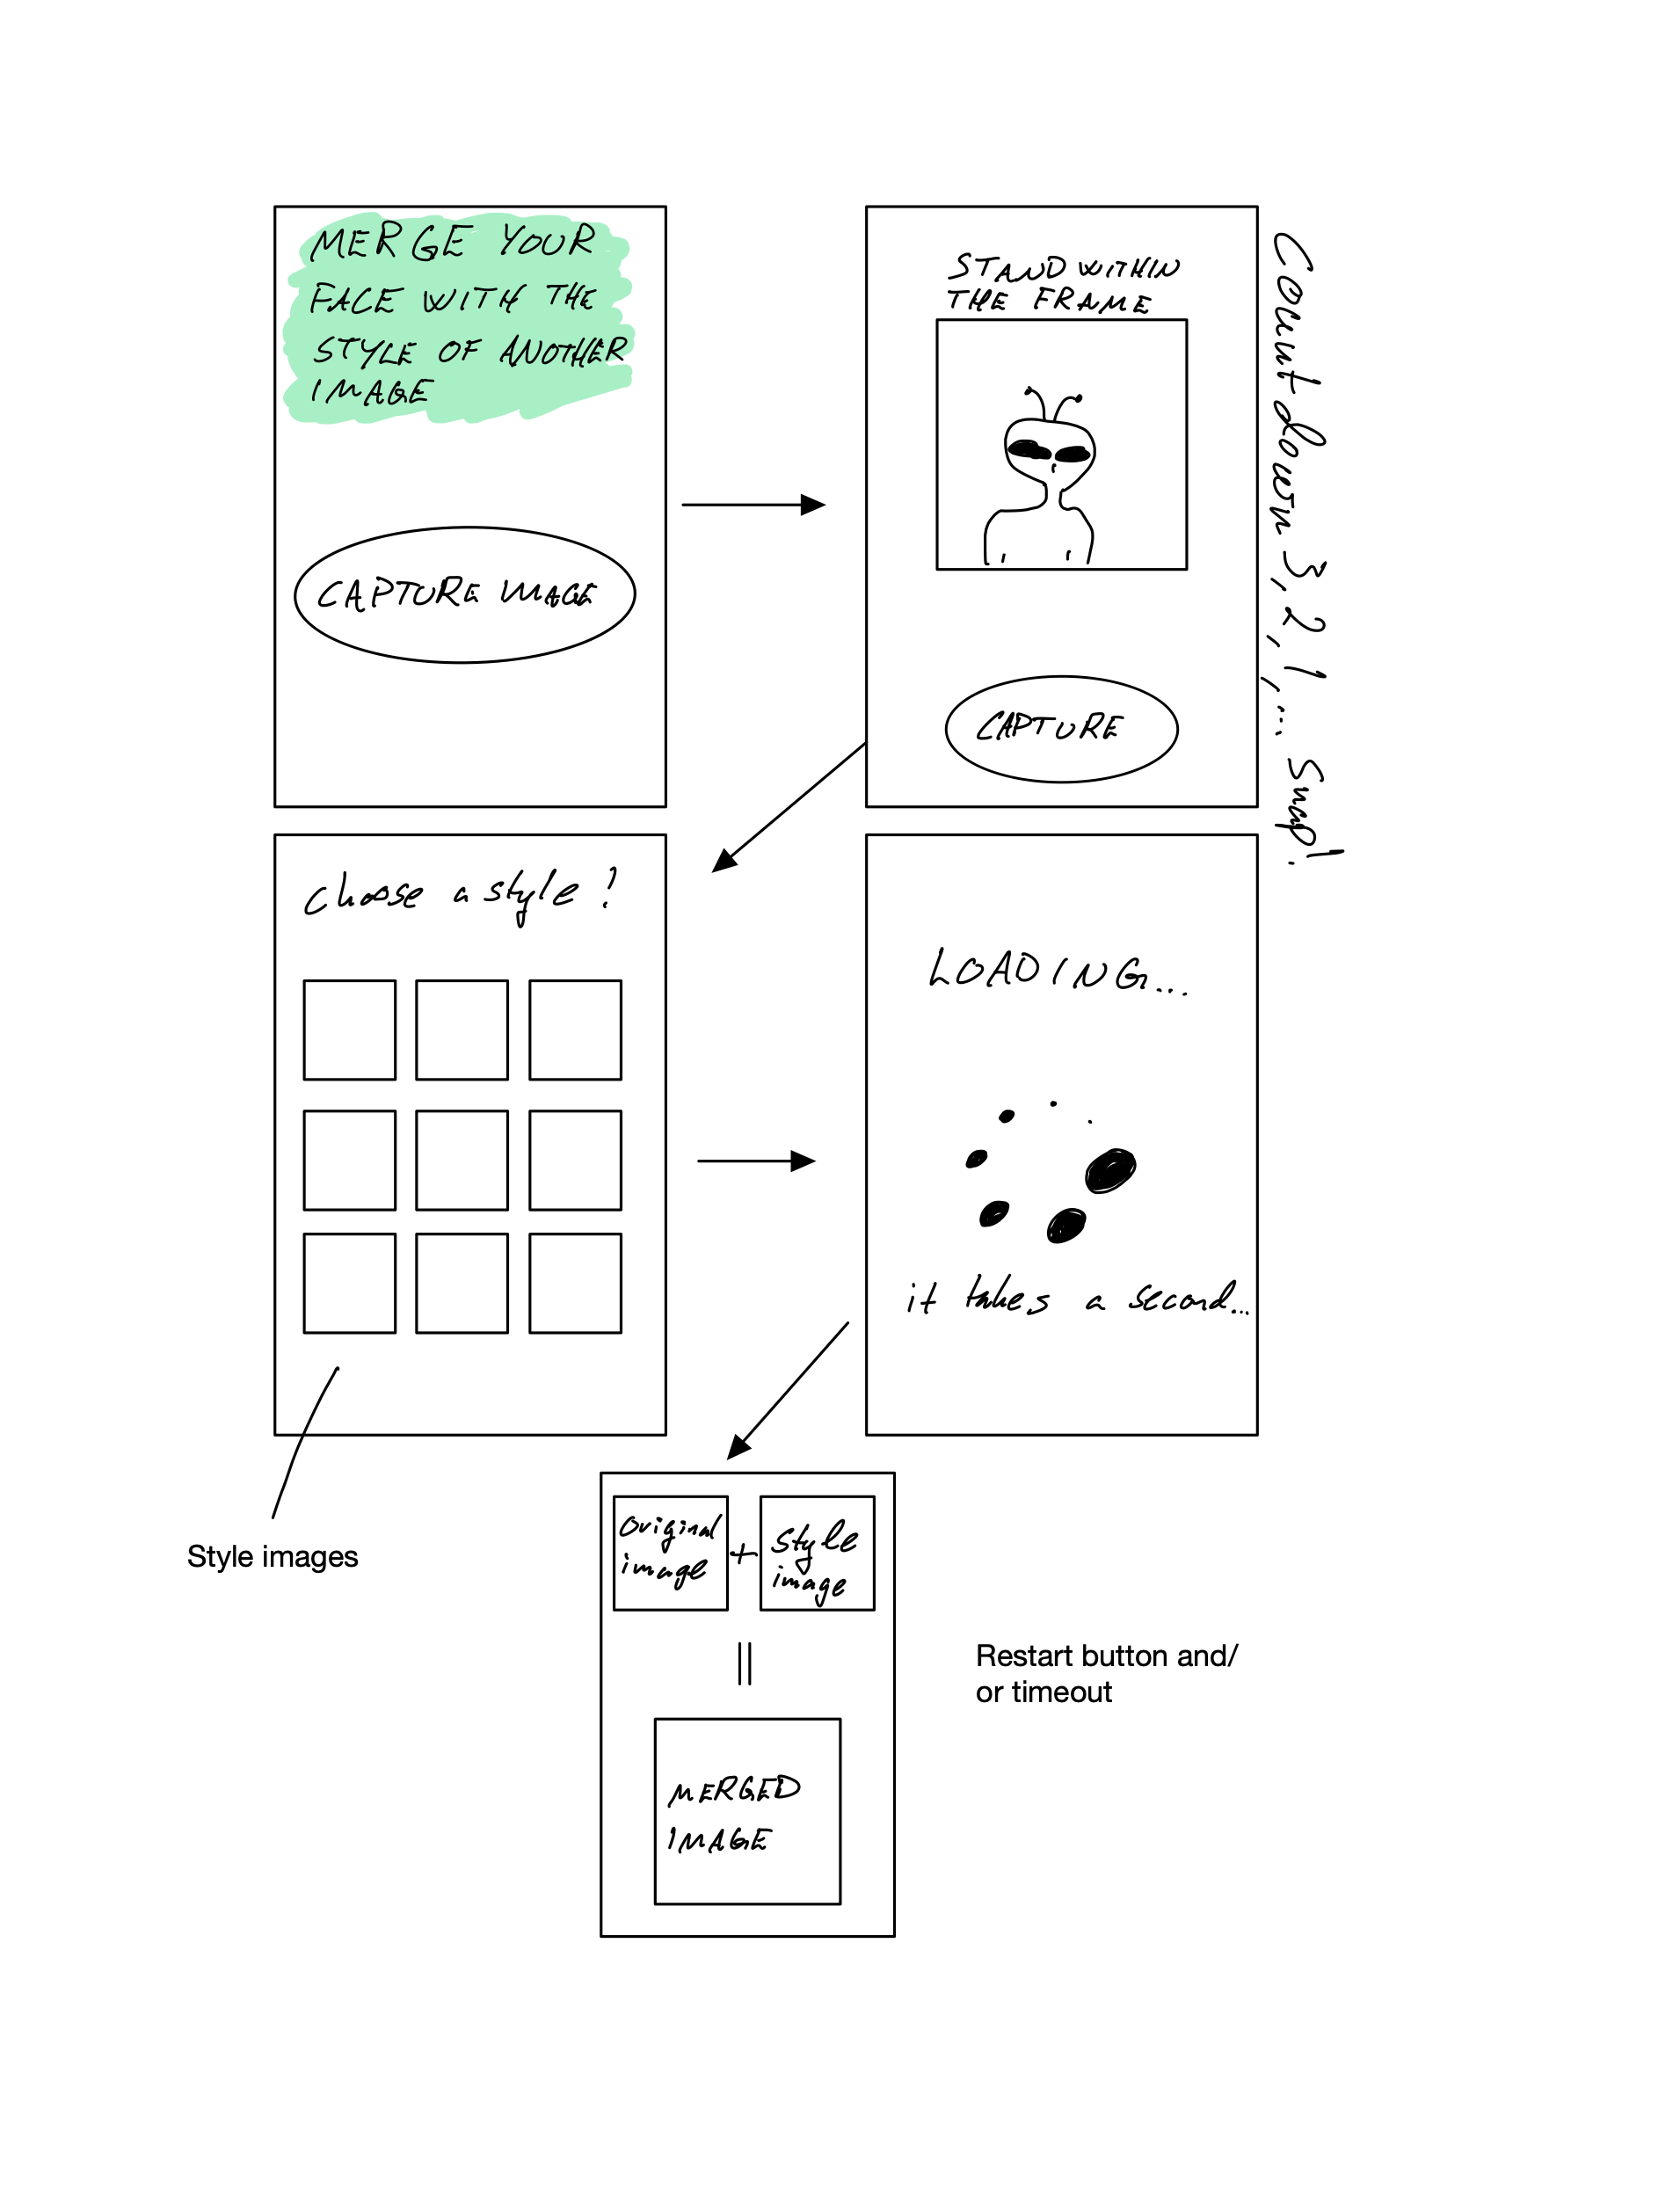 MERGE YOUR
FACE WITH THE
STYLE OF ANOTHER
IMAGE
CAPTURE IMAGE
STAND WITHIN
THE FRAME
CAPTURE
Count down 3, 2, 1, ... Snap!
choose a style?
LOADING...
it takes a second...
Style images
original
image
+
style
image
||
MERGED
IMAGE
Restart button and/
or timeout